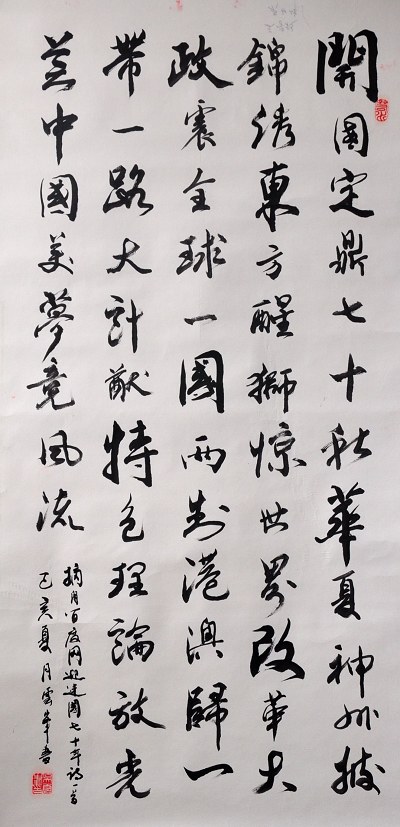 開国定鼎七十秋華夏神州披
錦绣東方醒獅惊世界改革大
政震全球一國两制港澳歸一
帶一路大計猷特色理論放光
芒中國美夢竟风流
摘自百度网迎建国七十年诗一首
己亥夏月雲峰書